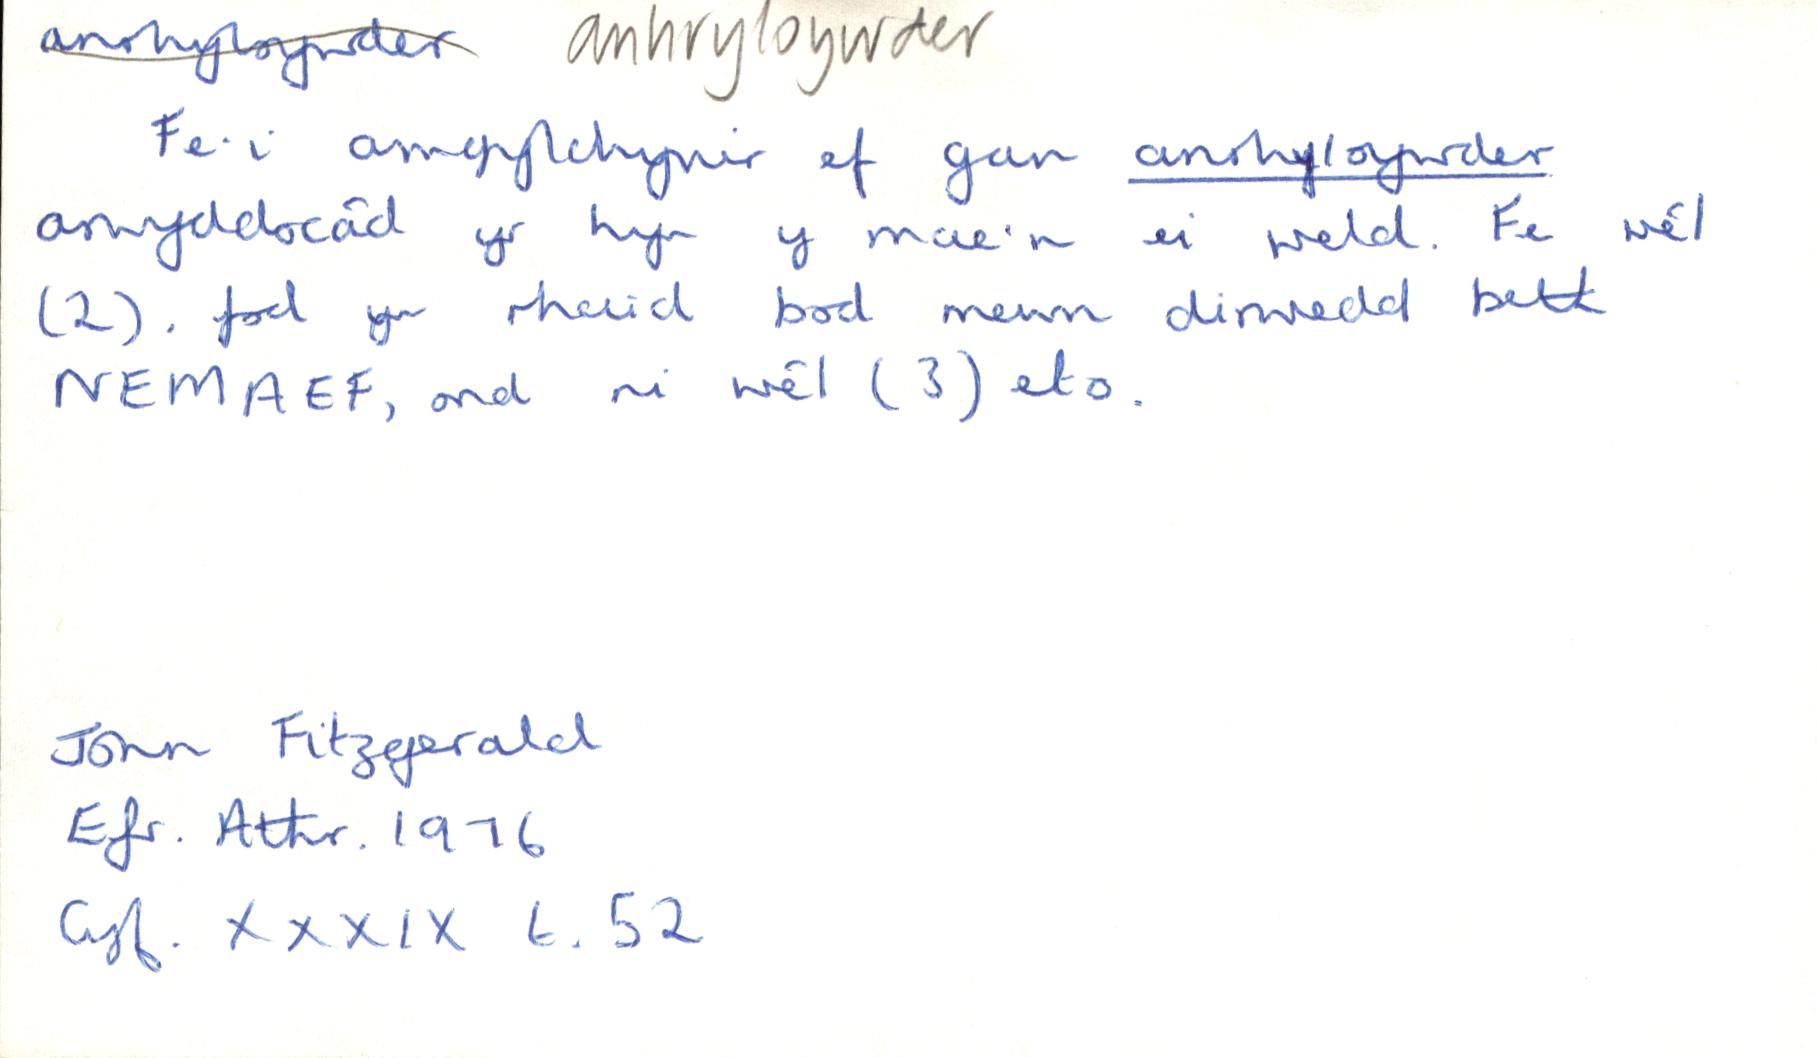 anrhyloywder anhryloywder
Fe'i amgylchynir ef gan anrhyloywder
amyddocâd yr hyn y mae'n ei weld. Fe wêl
(2). fod yn rhaid bod mewn dirwedd beth
NEMAEF, ond ni wêl (3) eto.
John Fitzgerald
Efr. Athr. 1976
Cyf. XXXIX t. 52